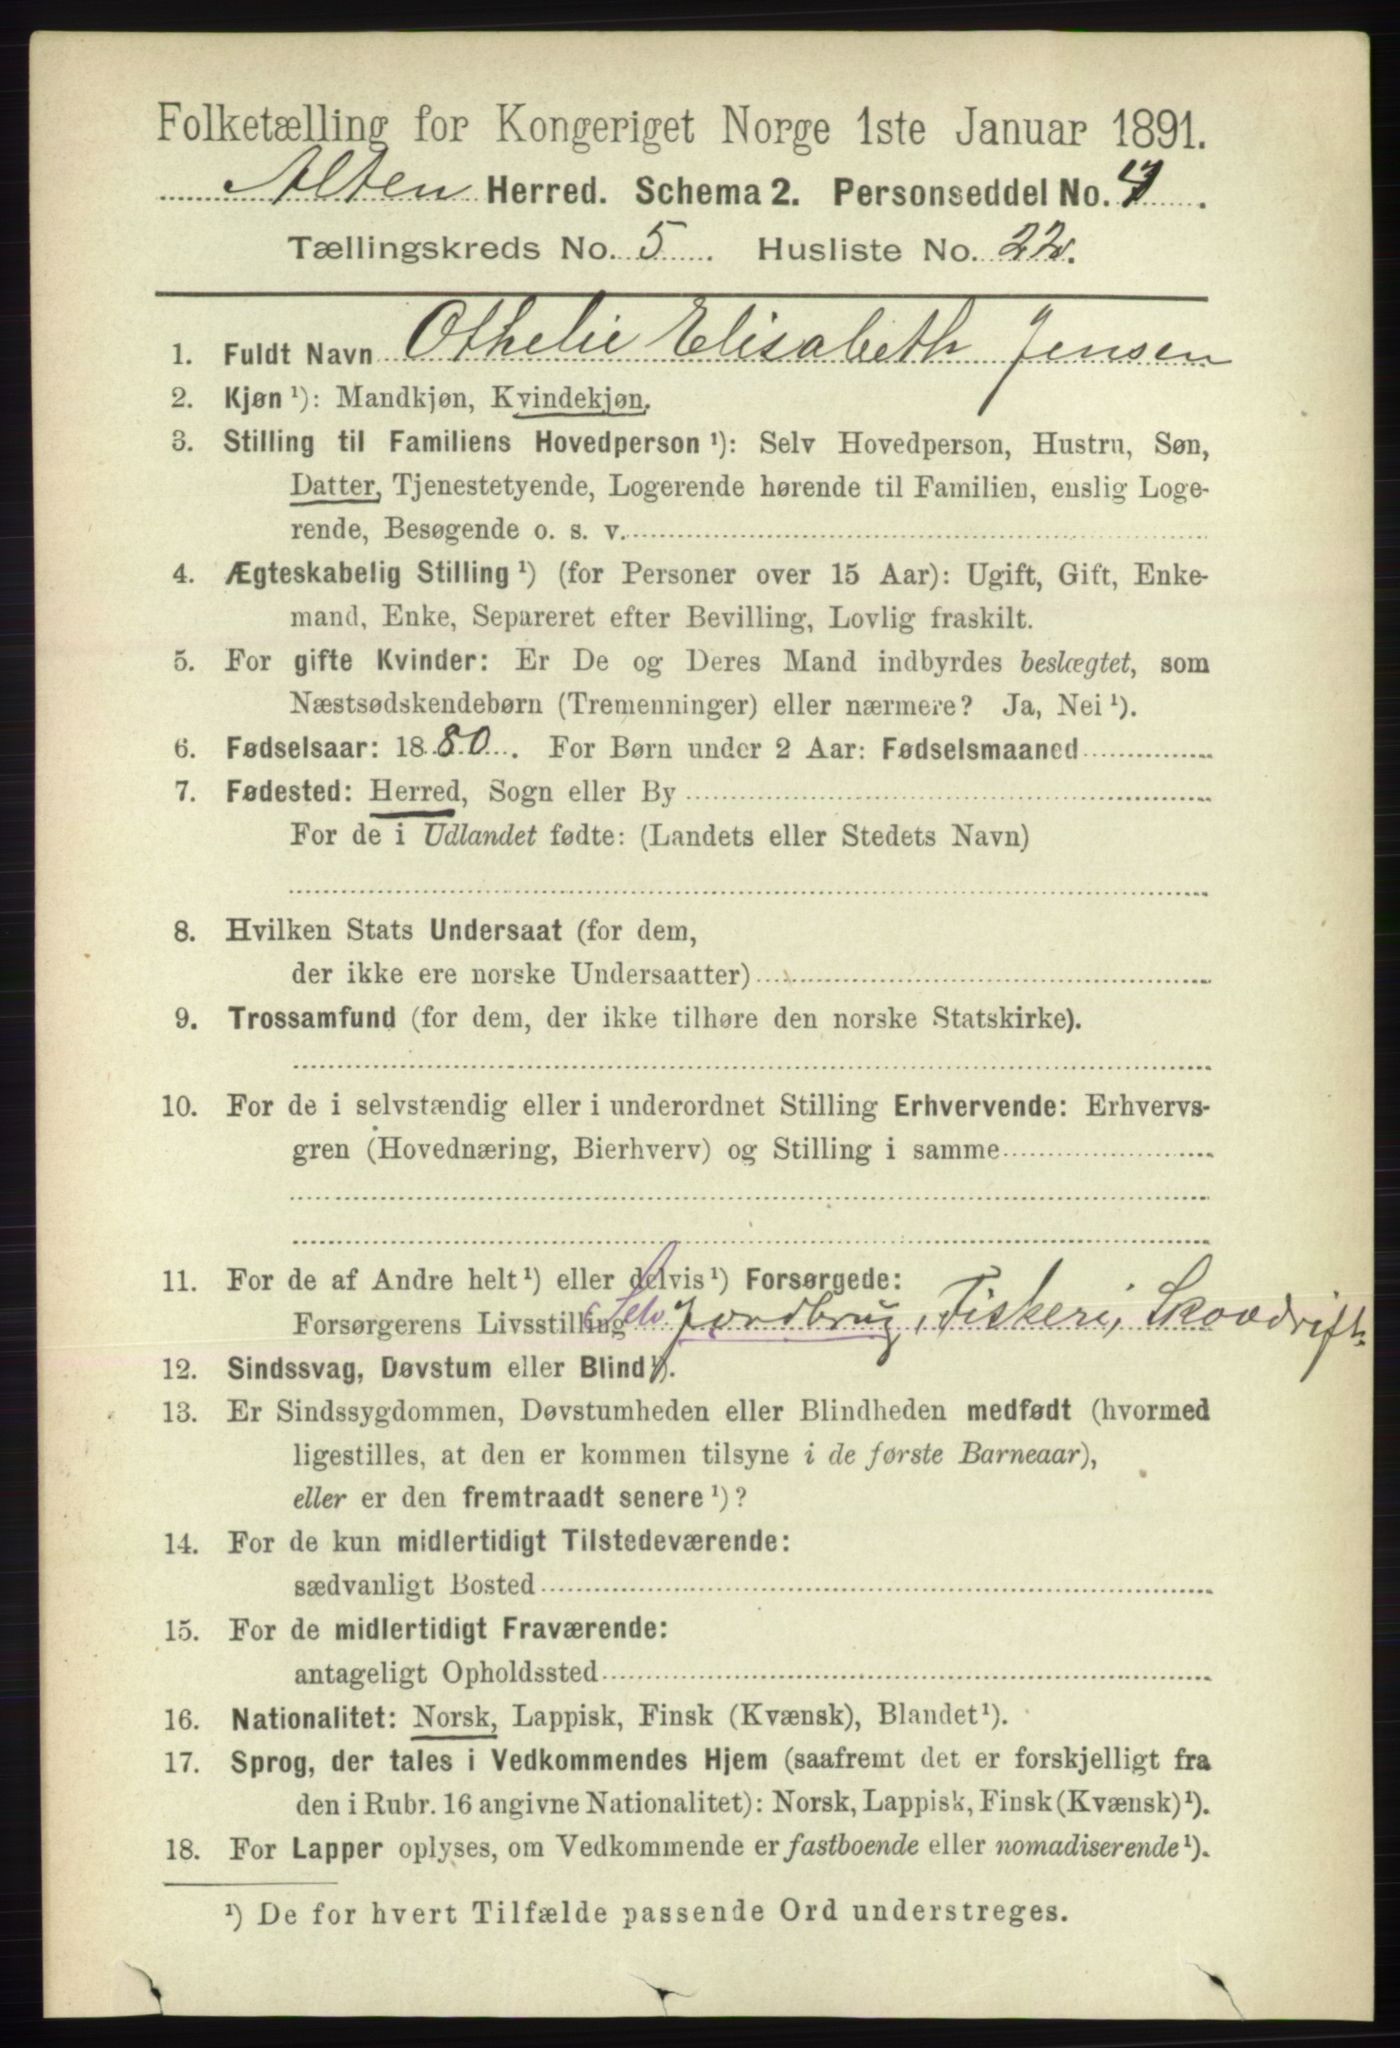 Folketælling for Kongeriget Norge 1ste Januar 1891.
Alten Herred. Schema 2. Personseddel No.
Tællingskreds No. 5. Husliste No. 22.
1. Fuldt Navn Othelie Elisabeth Jensen
2. Kjøn ¹): Mandkjøn, Kvindekjøn.
3. Stilling til Familiens Hovedperson ¹): Selv Hovedperson, Hustru, Søn,
Datter, Tjenestetyende, Logerende hørende til Familien, enslig Loge-
rende, Besøgende o. s. v.
4. Ægteskabelig Stilling ¹) (for Personer over 15 Aar): Ugift, Gift, Enke-
mand, Enke, Separeret efter Bevilling, Lovlig fraskilt.
5. For gifte Kvinder: Er De og Deres Mand indbyrdes beslægtet, som
Næstsødskendebørn (Tremenninger) eller nærmere? Ja, Nei ¹).
6. Fødselsaar: 1880. For Børn under 2 Aar: Fødselsmaaned
7. Fødested: Herred, Sogn eller By
For de i Udlandet fødte: (Landets eller Stedets Navn)
8. Hvilken Stats Undersaat (for dem,
der ikke ere norske Undersaatter)
9. Trossamfund (for dem, der ikke tilhøre den norske Statskirke).
10. For de i selvstændig eller i underordnet Stilling Erhvervende: Erhvervs-
gren (Hovednæring, Bierhverv) og Stilling i samme
11. For de af Andre helt ¹) eller delvis ¹) Forsørgede:
Forsørgerens Livsstilling Selv Jordbrug, Fiskeri, Skovdrift
12. Sindssvag, Døvstum eller Blind ¹).
13. Er Sindssygdommen, Døvstumheden eller Blindheden medfødt (hvormed
ligestilles, at den er kommen tilsyne i de første Barneaar),
eller er den fremtraadt senere ¹)?
14. For de kun midlertidigt Tilstedeværende:
sædvanligt Bosted
15. For de midlertidigt Fraværende:
antageligt Opholdssted
16. Nationalitet: Norsk, Lappisk, Finsk (Kvænsk), Blandet ¹).
17. Sprog, der tales i Vedkommendes Hjem (saafremt det er forskjelligt fra
den i Rubr. 16 angivne Nationalitet): Norsk, Lappisk, Finsk (Kvænsk) ¹).
18. For Lapper oplyses, om Vedkommende er fastboende eller nomadiserende ¹).
¹) De for hvert Tilfælde passende Ord understreges.